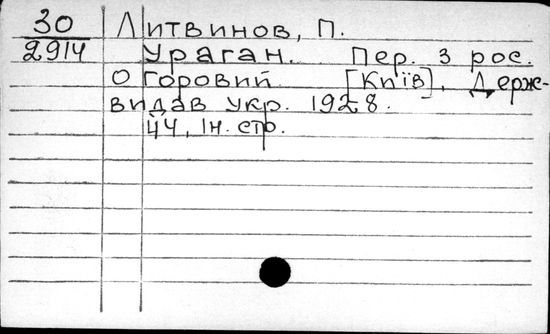 30 Литвинов, П.
2914 Ураган. Пер. з рос.
О Горовий [Київ], Держ-
видав Укр. 1928.
44, Ін. стр.